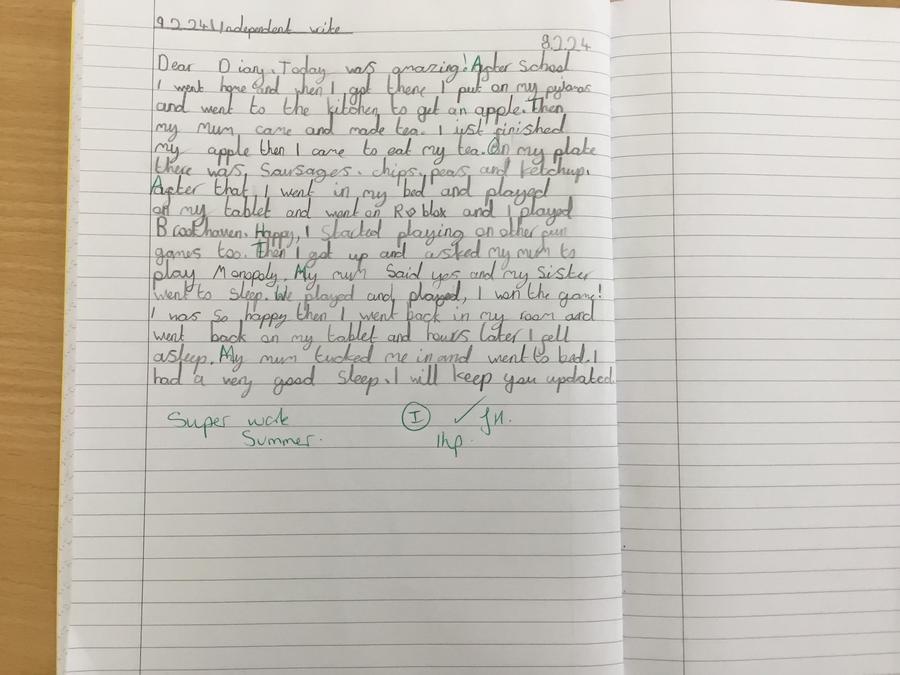 9.2.24 Independent write
8.2.24
Dear Diary, Today was amazing! After School
I went home and when I got there I put on my pyjamas
and went to the kitchen to get an apple. Then
my Mum came and made tea. I just finished
my apple then I came to eat my tea. On my plate
there was, Sausages, chips, peas and ketchup.
After that, I went in my bed and played
on my tablet and went on Roblox and I played
Brookhaven. Happy, I started playing on other fun
games too. Then I got up and asked my mum to
play Monopoly. My mum Said yes and my Sister
went to sleep. We played and played, I won the game!
I was So happy then I went back in my room and
went back on my tablet and hours later I fell
asleep. My mum tucked me in and went to bed. I
had a very good Sleep. I will keep you updated.
Super work I ✓ JH.
Summer. 1hp.